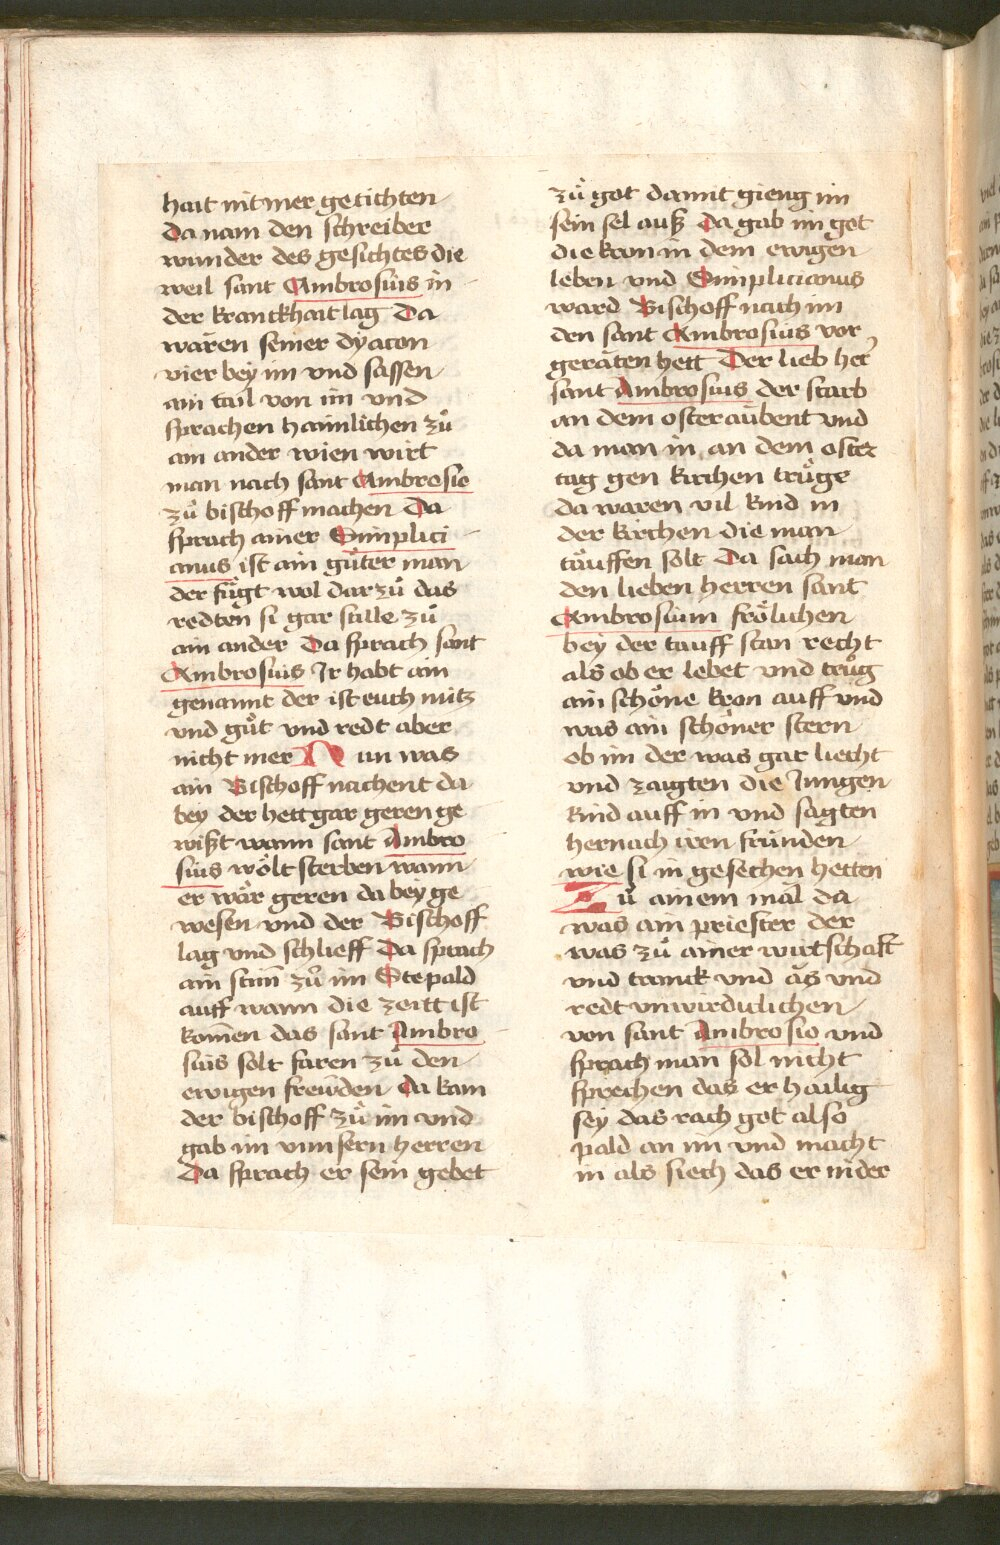 hait nit mer getichten
Da nam den schreiber
wunder des gesichtes die
weil sant Ambrosius in
der kranckhait lag Da
wären seiner dyacon
vier bey im vnd sassen
ain tail von im vnd
sprachen haimlichen zů
ain ander wien wirt
man nach sant Ambrosio
zů bischoff machen Da
sprach ainer Simplici
anus ist ain gůter man
der fůgt wol dar zů das
redten si gar stille zů
ain ander Da sprach sant
Ambrosius Jr habt ain
genannt der ist euch nütz
vnd gůt vnd redt aber
nicht mer Nun was
ain Bischoff nachent da
bey der hett gar geren ge
wißt wann sant Ambro
sius wölt sterben wann
er wär geren da bey ge
wesen vnd der Bischoff
lag vnd schlieff Da sprach
ain stim̅ zů im Ste pald
auff wann die zeitt ist
kom̅en das sant Ambro
sius solt faren zů den
ewigen frewden Da kam
der bischoff zů im vnd
gab im vnnsern herren
Da sprach er sein gebet
zů got damit gieng im
sein sel auß Da gab im got
die kron in dem ewigen
leben vnd Simplicianus
ward Bischoff nach im
den sant Ambrosius vor
geräten hett Der lieb her
sant Ambrosius der starb
an dem osteraubent vnd
da man in an dem oster
tag gen kirchen trůge
da waren vil kind in
der kirchen die man
tauffen solt Da sach man
den lieben herren sant
Ambrosium frölichen
bey der tauff stan recht
als ob er lebet vnd trůg
ain schöne kron auff vnd
was ain schöner stern
ob im der was gar liecht
vnd zaigten die Jungen
kind auff in vnd sagten
hernach iren frunden
wie si in gesechen hetten
Zů ainem mäl da
was ain priester der
was zů ainer wirtschaft
vnd tranck vnd äs vnd
redt vnwirdiclichen
von sant Ambrosio vnd
sprach man sol nicht
sprechen das er hailig
sey das rach got also
pald an im vnd macht
in als siech das er nider